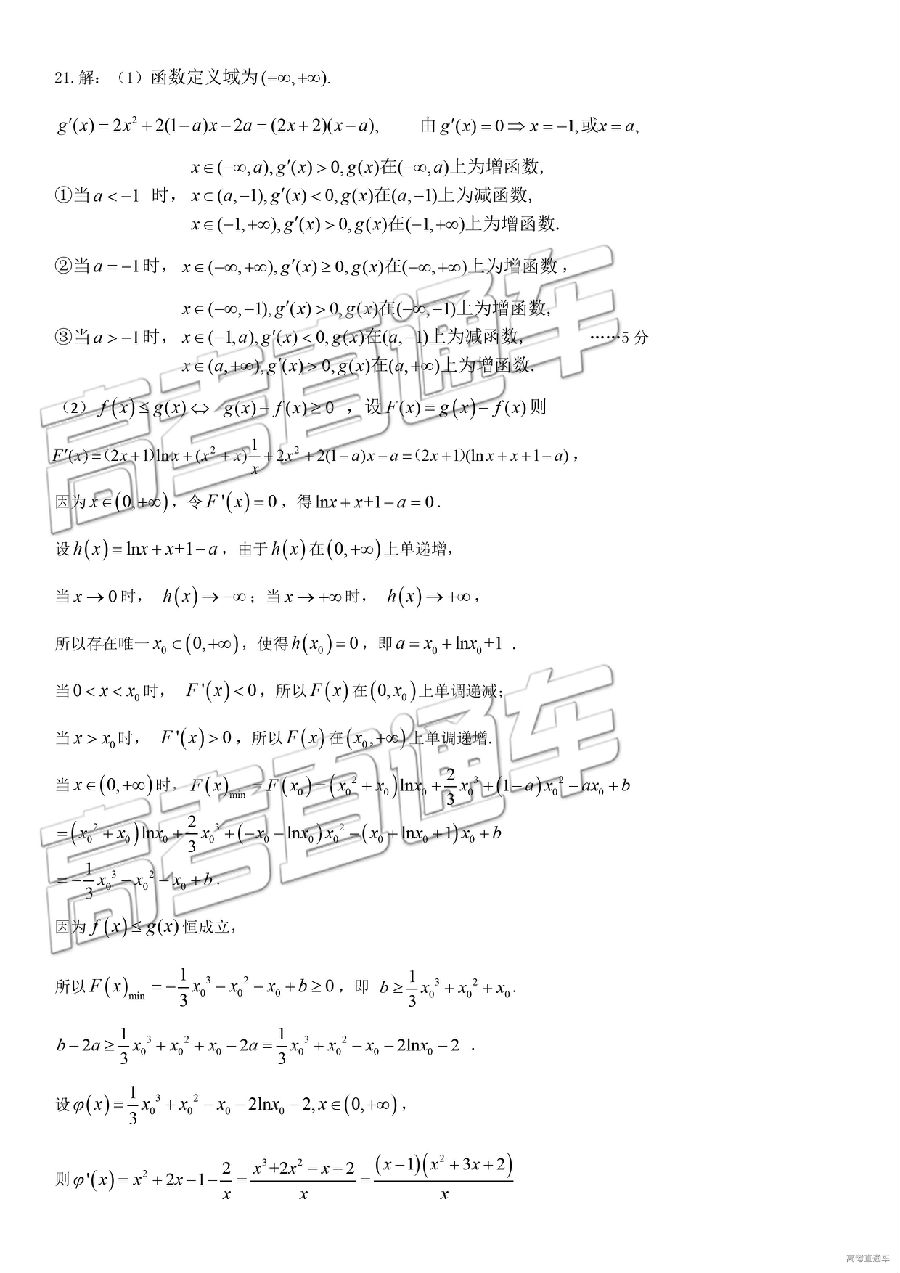 21. 解：（1）函数定义域为(−∞,+∞).
g′(x) = 2x² + 2(1−a)x − 2a = (2x+2)(x−a), 由 g′(x) = 0 ⇒ x = −1, 或x = a,
x∈(−∞,a), g′(x) > 0, g(x)在(−∞,a)上为增函数,
①当 a < −1 时， x⊂(a,−1), g′(x) < 0, g(x)在(a,−1)上为减函数,
x∈(−1,+∞), g′(x) > 0, g(x)在(−1,+∞)上为增函数.
②当 a = −1 时， x∈(−∞,+∞), g′(x) ≥ 0, g(x)在(−∞,+∞)上为增函数，
x∈(−∞,−1), g′(x) > 0, g(x)在(−∞,−1)上为增函数,
③当 a > −1 时， x∈(−1,a), g′(x) < 0, g(x)在(a, −1)上为减函数, ……5 分
x∈(a,+∞), g′(x) > 0, g(x)在(a,+∞)上为增函数.
（2） f(x) ≤ g(x) ⇔ g(x) − f(x) ≥ 0 ，设 F(x) = g(x) − f(x) 则
F′(x) = (2x+1)lnx + (x²+x)1/x + 2x² + 2(1−a)x − a = (2x+1)(lnx + x + 1 − a)，
因为 x∈(0,+∞)，令 F'(x) = 0，得 lnx + x+1 − a = 0.
设 h(x) = lnx + x+1 − a，由于 h(x) 在 (0,+∞) 上单递增，
当 x → 0 时， h(x) → −∞；当 x → +∞ 时， h(x) → +∞，
所以存在唯一 x₀ ⊂ (0,+∞)，使得 h(x₀) = 0，即 a = x₀ + lnx₀+1 .
当 0 < x < x₀ 时， F'(x) < 0，所以 F(x) 在 (0, x₀) 上单调递减；
当 x > x₀ 时， F'(x) > 0，所以 F(x) 在 (x₀,+∞) 上单调递增.
当 x∈(0,+∞) 时， F(x)min = F(x₀) = (x₀² + x₀)lnx₀ + 2/3 x₀³ + (1−a)x₀² − ax₀ + b
= (x₀² + x₀)lnx₀ + 2/3 x₀³ + (−x₀ − lnx₀)x₀² − (x₀ − lnx₀ + 1)x₀ + b
= −1/3 x₀³ − x₀² − x₀ + b.
因为 f(x) ≤ g(x) 恒成立，
所以 F(x)min = −1/3 x₀³ − x₀² − x₀ + b ≥ 0，即 b ≥ 1/3 x₀³ + x₀² + x₀.
b − 2a ≥ 1/3 x₀³ + x₀² + x₀ − 2a = 1/3 x₀³ + x₀² − x₀ − 2lnx₀ − 2 .
设 φ(x) = 1/3 x₀³ + x₀² − x₀ − 2lnx₀ − 2, x∈(0,+∞)，
则 φ'(x) = x² + 2x − 1 − 2/x = (x³+2x² − x − 2)/x = (x−1)(x² + 3x + 2)/x
高考直通车
高考直通车
高考直通车